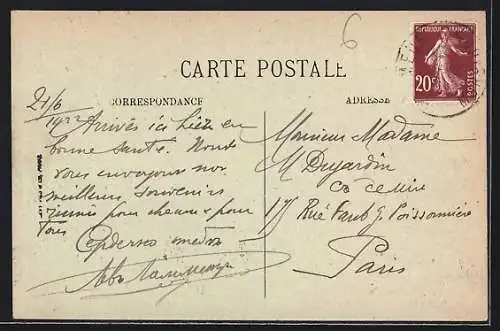 6
REPUBLIQUE FRANÇAISE
20c
POSTES
CARTE POSTALE
CORRESPONDANCE
ADRESSE
21/6
1922
Arrivés ici hier en
bonne santé. Nous
vous envoyons nos
meilleurs souvenirs
pour chacun & pour
Tous
Monsieur Madame
M Dujardin
17 Rue Faub g. Poissonnière
Paris